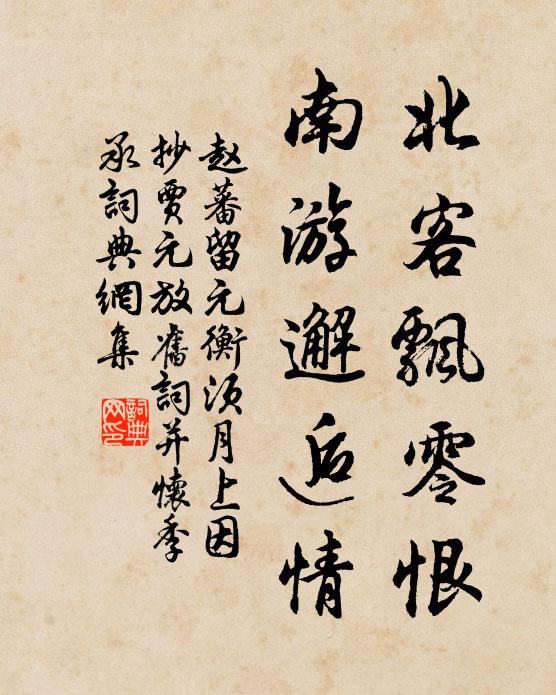 北客飘零恨
南游邂逅情
赵蕃留元衡须月上因
抄贾元放旧词并怀季
承词典網集
詞典
网印